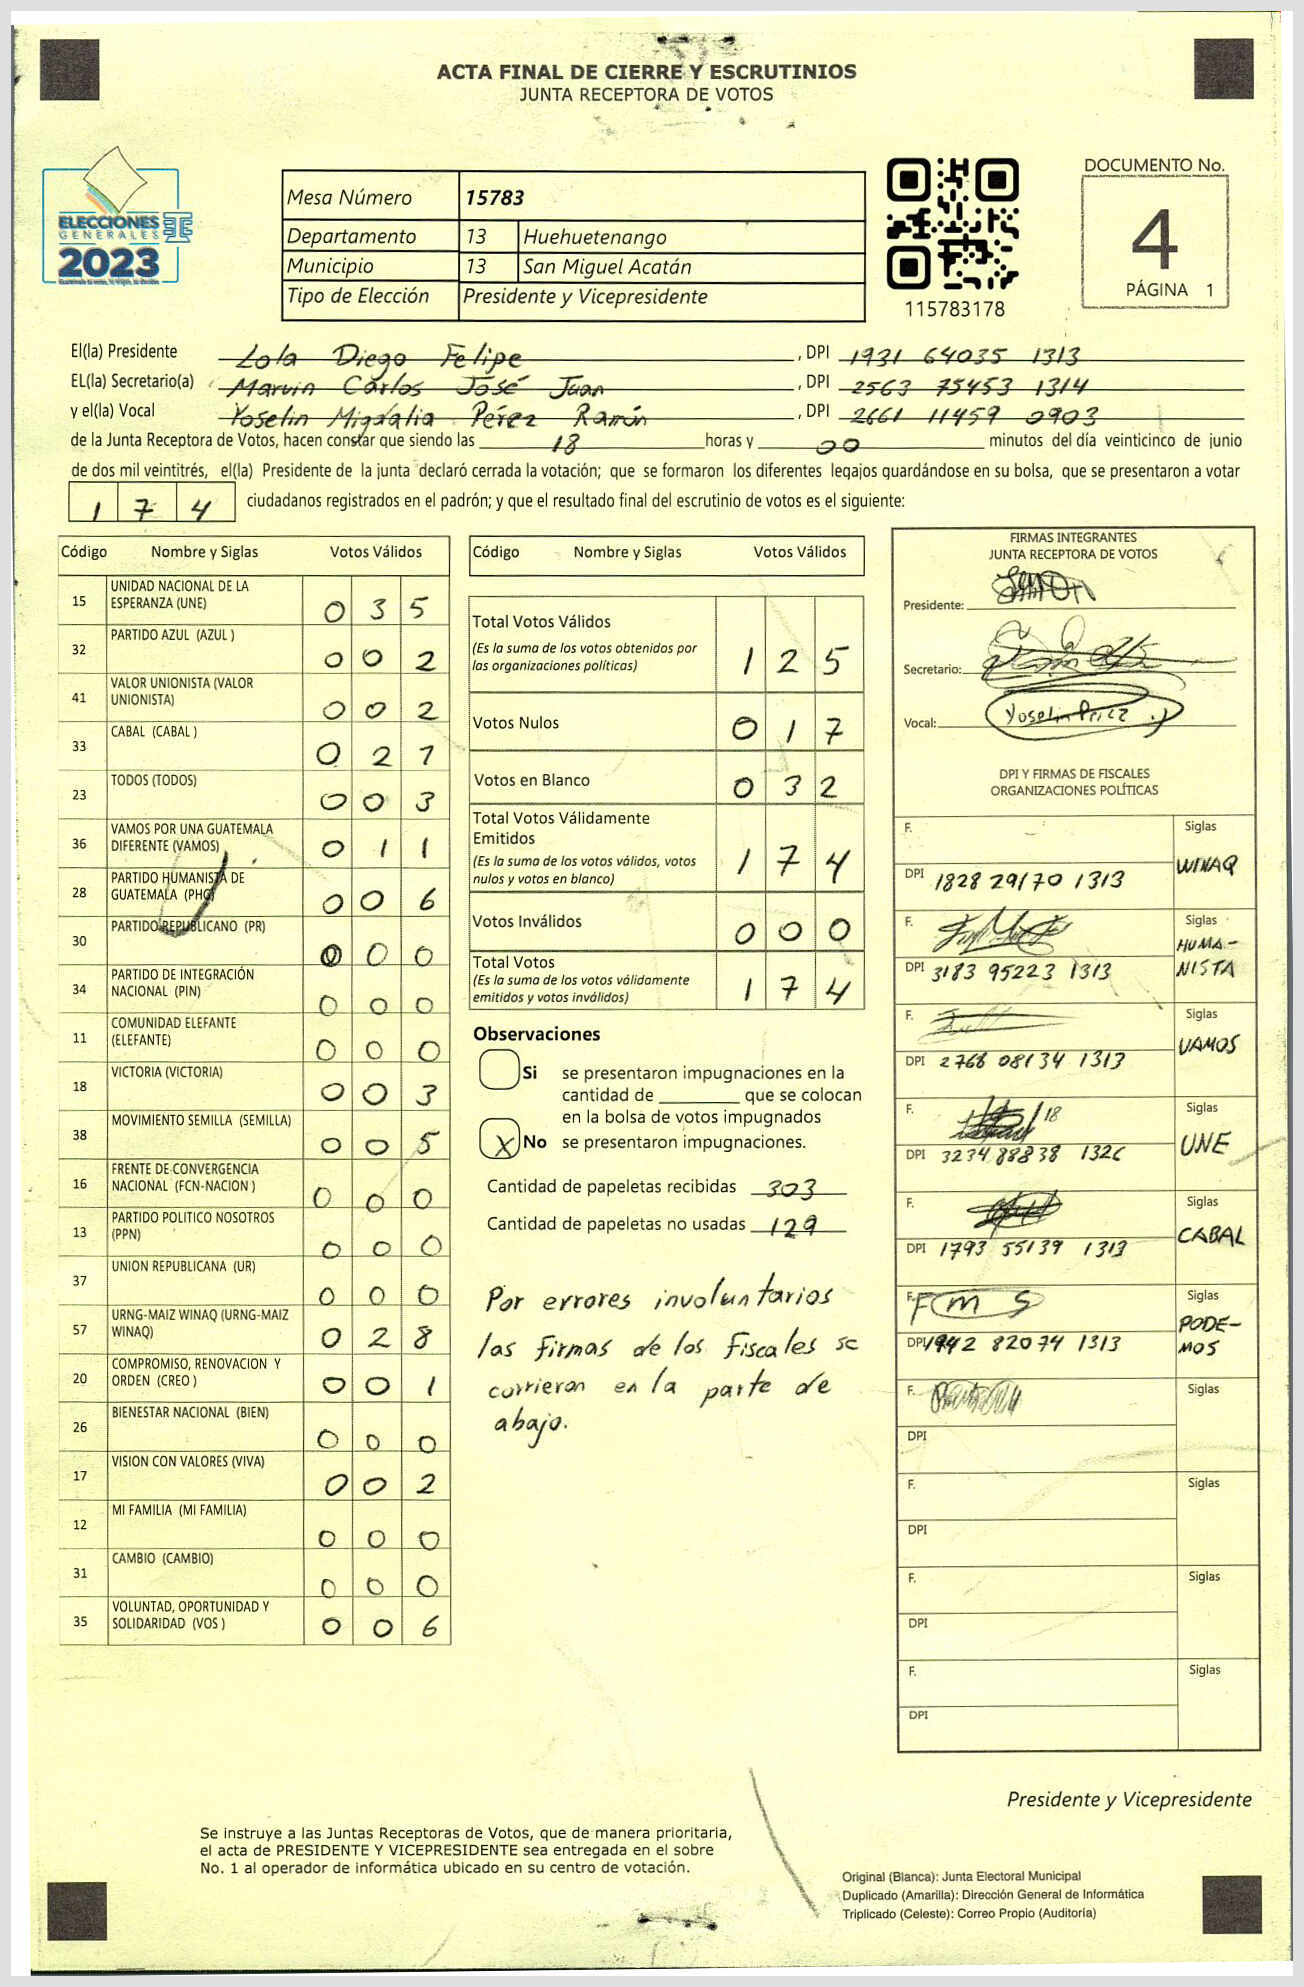 ACTA FINAL DE CIERRE Y ESCRUTINIOS
JUNTA RECEPTORA DE VOTOS
ELECCIONES
GENERALES
2023
TSE
Mesa Número 15783
Departamento 13 Huehuetenango
Municipio 13 San Miguel Acatán
Tipo de Elección Presidente y Vicepresidente
115783178
DOCUMENTO No.
4
PÁGINA 1
El(la) Presidente Lola Diego Felipe , DPI 1931 64035 1313
EL(la) Secretario(a) Marvin Carlos José Juan , DPI 2563 75453 1314
y el(la) Vocal Yoselin Migdalia Pérez Ramón , DPI 2661 11459 0903
de la Junta Receptora de Votos, hacen constar que siendo las 18 horas y 00 minutos del día veinticinco de junio
de dos mil veintitrés, el(la) Presidente de la junta declaró cerrada la votación; que se formaron los diferentes legajos guardándose en su bolsa, que se presentaron a votar
1 7 4 ciudadanos registrados en el padrón; y que el resultado final del escrutinio de votos es el siguiente:
Código Nombre y Siglas Votos Válidos
15 UNIDAD NACIONAL DE LA
ESPERANZA (UNE) 0 3 5
32 PARTIDO AZUL (AZUL ) 0 0 2
41 VALOR UNIONISTA (VALOR
UNIONISTA) 0 0 2
33 CABAL (CABAL ) 0 2 1
23 TODOS (TODOS) 0 0 3
36 VAMOS POR UNA GUATEMALA
DIFERENTE (VAMOS) 0 1 1
28 PARTIDO HUMANISTA DE
GUATEMALA (PHG) 0 0 6
30 PARTIDO REPUBLICANO (PR) 0 0 0
34 PARTIDO DE INTEGRACIÓN
NACIONAL (PIN) 0 0 0
11 COMUNIDAD ELEFANTE
(ELEFANTE) 0 0 0
18 VICTORIA (VICTORIA) 0 0 3
38 MOVIMIENTO SEMILLA (SEMILLA) 0 0 5
16 FRENTE DE CONVERGENCIA
NACIONAL (FCN-NACION ) 0 0 0
13 PARTIDO POLITICO NOSOTROS
(PPN) 0 0 0
37 UNION REPUBLICANA (UR) 0 0 0
57 URNG-MAIZ WINAQ (URNG-MAIZ
WINAQ) 0 2 8
20 COMPROMISO, RENOVACION Y
ORDEN (CREO ) 0 0 1
26 BIENESTAR NACIONAL (BIEN) 0 0 0
17 VISION CON VALORES (VIVA) 0 0 2
12 MI FAMILIA (MI FAMILIA) 0 0 0
31 CAMBIO (CAMBIO) 0 0 0
35 VOLUNTAD, OPORTUNIDAD Y
SOLIDARIDAD (VOS ) 0 0 6
Código Nombre y Siglas Votos Válidos
Total Votos Válidos
(Es la suma de los votos obtenidos por
las organizaciones políticas) 1 2 5
Votos Nulos 0 1 7
Votos en Blanco 0 3 2
Total Votos Válidamente
Emitidos
(Es la suma de los votos válidos, votos
nulos y votos en blanco) 1 7 4
Votos Inválidos 0 0 0
Total Votos
(Es la suma de los votos válidamente
emitidos y votos inválidos) 1 7 4
Observaciones
Si se presentaron impugnaciones en la
cantidad de ________ que se colocan
en la bolsa de votos impugnados
X No se presentaron impugnaciones.
Cantidad de papeletas recibidas 303
Cantidad de papeletas no usadas 129
Por errores involuntarios
las firmas de los fiscales se
corrieron en la parte de
abajo.
FIRMAS INTEGRANTES
JUNTA RECEPTORA DE VOTOS
Presidente:
Secretario:
Vocal: Yoselin Pérez
DPI Y FIRMAS DE FISCALES
ORGANIZACIONES POLÍTICAS
F. Siglas
DPI 1828 29170 1313 WINAQ
F. Siglas
HUMA-
DPI 3183 95223 1313 NISTA
F. Siglas
DPI 2766 08134 1313 VAMOS
F. 18 Siglas
DPI 3234 88838 1326 UNE
F. Siglas
DPI 1793 55139 1313 CABAL
F. FMS Siglas
PODE-
DPI 1942 82074 1313 MOS
F. Siglas
DPI
F. Siglas
DPI
F. Siglas
DPI
F. Siglas
DPI
Presidente y Vicepresidente
Se instruye a las Juntas Receptoras de Votos, que de manera prioritaria,
el acta de PRESIDENTE Y VICEPRESIDENTE sea entregada en el sobre
No. 1 al operador de informática ubicado en su centro de votación.
Original (Blanca): Junta Electoral Municipal
Duplicado (Amarilla): Dirección General de Informática
Triplicado (Celeste): Correo Propio (Auditoria)